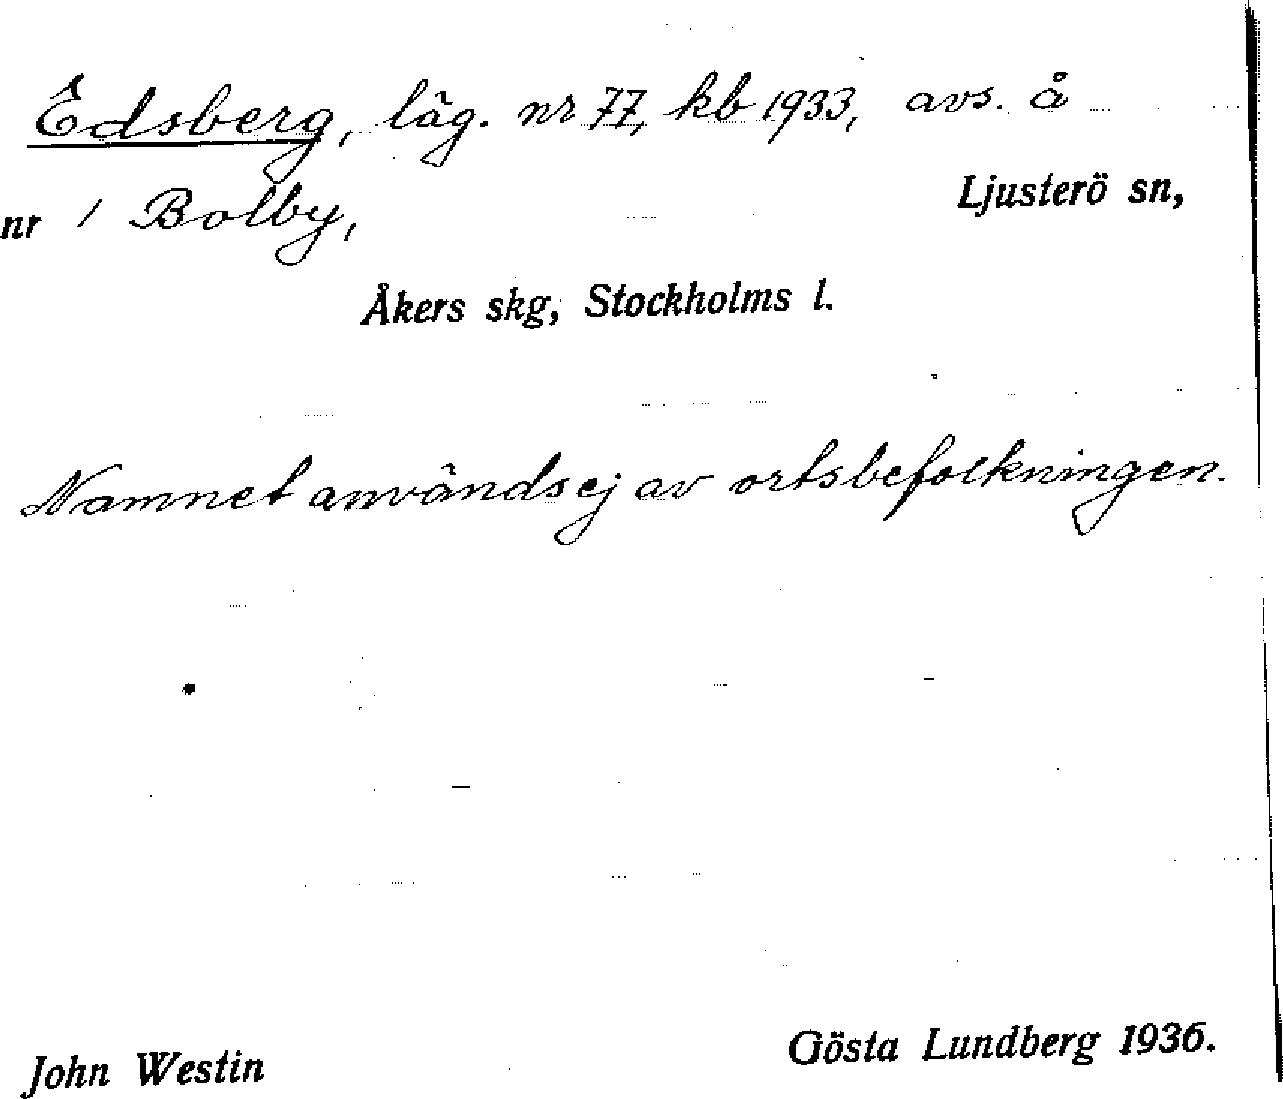 Edsberg, läg. nr 77, kb 1933, avs. å
nr 1 Bolby, Ljusterö sn,
Åkers skg, Stockholms l.
Namnet användsej av ortsbefolkningen.
John Westin Gösta Lundberg 1936.